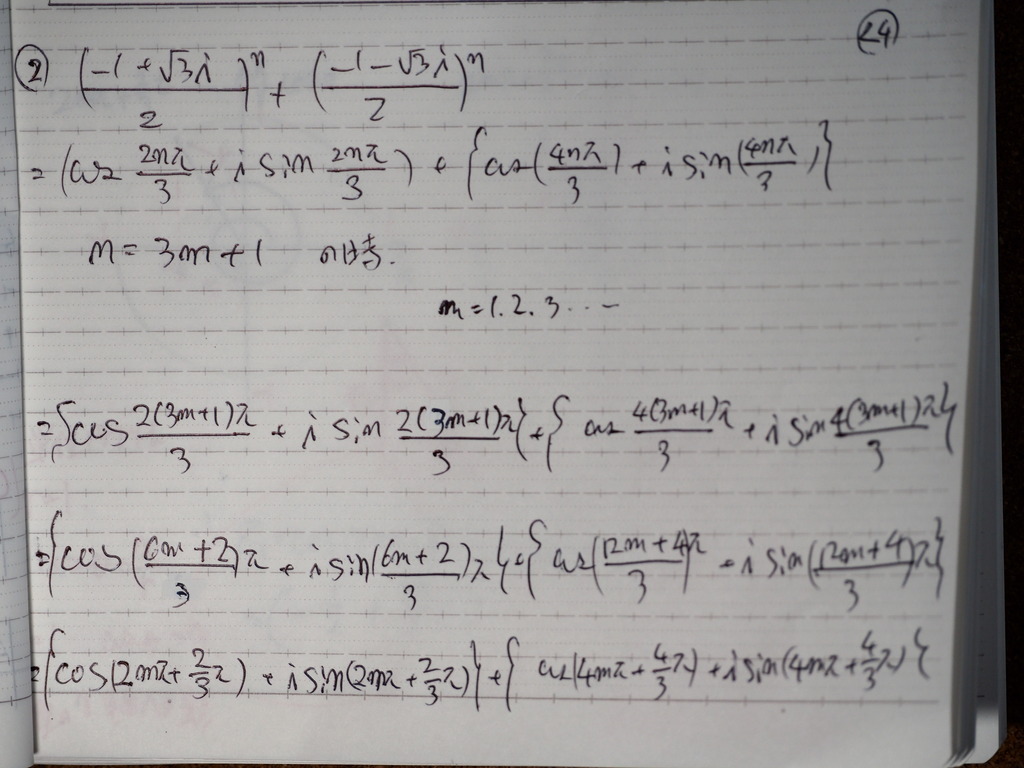 24
② (-1+√3i/2)^n + (-1-√3i/2)^n
= (cos 2nπ/3 + i sin 2nπ/3) + {cos(4nπ/3) + i sin(4nπ/3)}
n = 3m+1 のとき.
m = 1. 2. 3 ...
= {cos 2(3m+1)π/3 + i sin 2(3m+1)π/3} + {cos 4(3m+1)π/3 + i sin 4(3m+1)π/3}
= {cos (6m+2/3)π + i sin(6m+2/3)π} + {cos(12m+4/3)π + i sin(12m+4/3)π}
= {cos(2mπ+2/3π) + i sin(2mπ+2/3π)} + {cos(4mπ+4/3π) + i sin(4mπ+4/3π)}